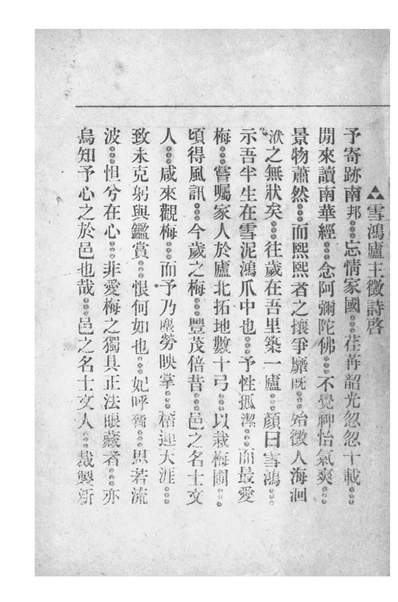 ▲▲雪鴻廬主徵詩啓
予寄跡南邦……忘情家國……荏苒韶光忽忽十載……
閒來讀南華經……念阿彌陀佛……不覺神怡氣爽……
景物蕭然……而熙熙者之攘爭靡既……始徵人海洄
洑之無狀矣……往歲在吾里築一廬……顏曰雪鴻……
示吾半生在雪泥鴻爪中也……予性孤潔……而最愛
梅……嘗囑家人於廬北拓地數十弓……以栽梅圃……
頃得風訊……今歲之梅……豐茂倍昔……邑之名士文
人……咸來觀梅……而予乃勞映掌……梧迎大涯……
致未克躬與鑑賞……恨何如也……妃呼豨……思若流
波……怛兮在心……非愛梅之獨具正法眼藏者……亦
烏知予心之於邑也哉……邑之名士文人……裁雙新